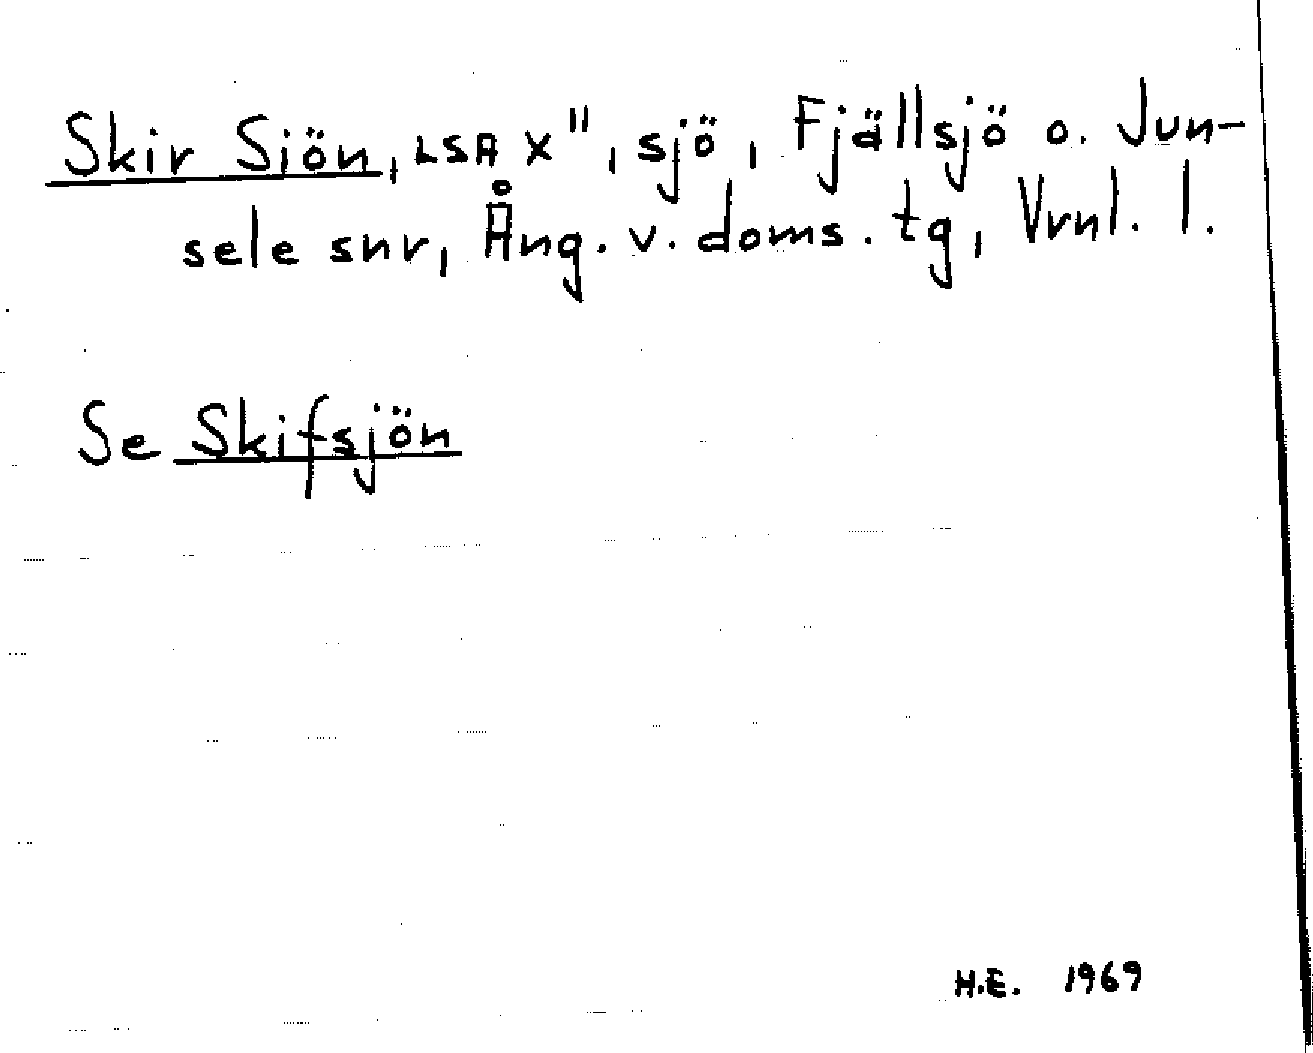 Skir Siön, LSA X", sjö, Fjällsjö o. Jun-
sele snr, Ång. v. doms. tg, Vrnl. l.
Se Skifsjön
H.E. 1969